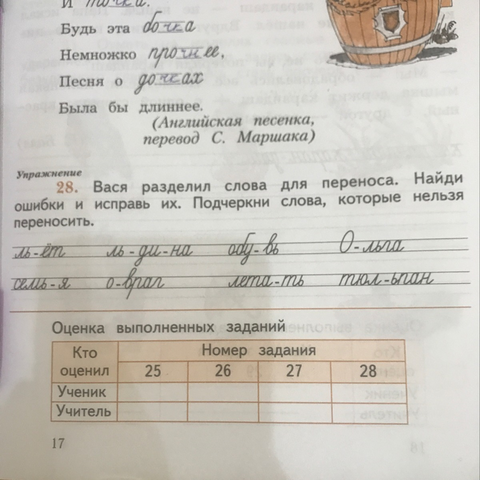 И точка.
Будь эта бочка
Немножко прочнее,
Песня о дочках
Была бы длиннее.
(Английская песенка,
перевод С. Маршака)
Упражнение
28. Вася разделил слова для переноса. Найди
ошибки и исправь их. Подчеркни слова, которые нельзя
переносить.
ль-ёт ль-ди-на обу-вь О-льга
семь-я о-враг лета-ть тюл-ьпан
Оценка выполненных заданий
Кто оценил Номер задания
25 26 27 28
Ученик
Учитель
17